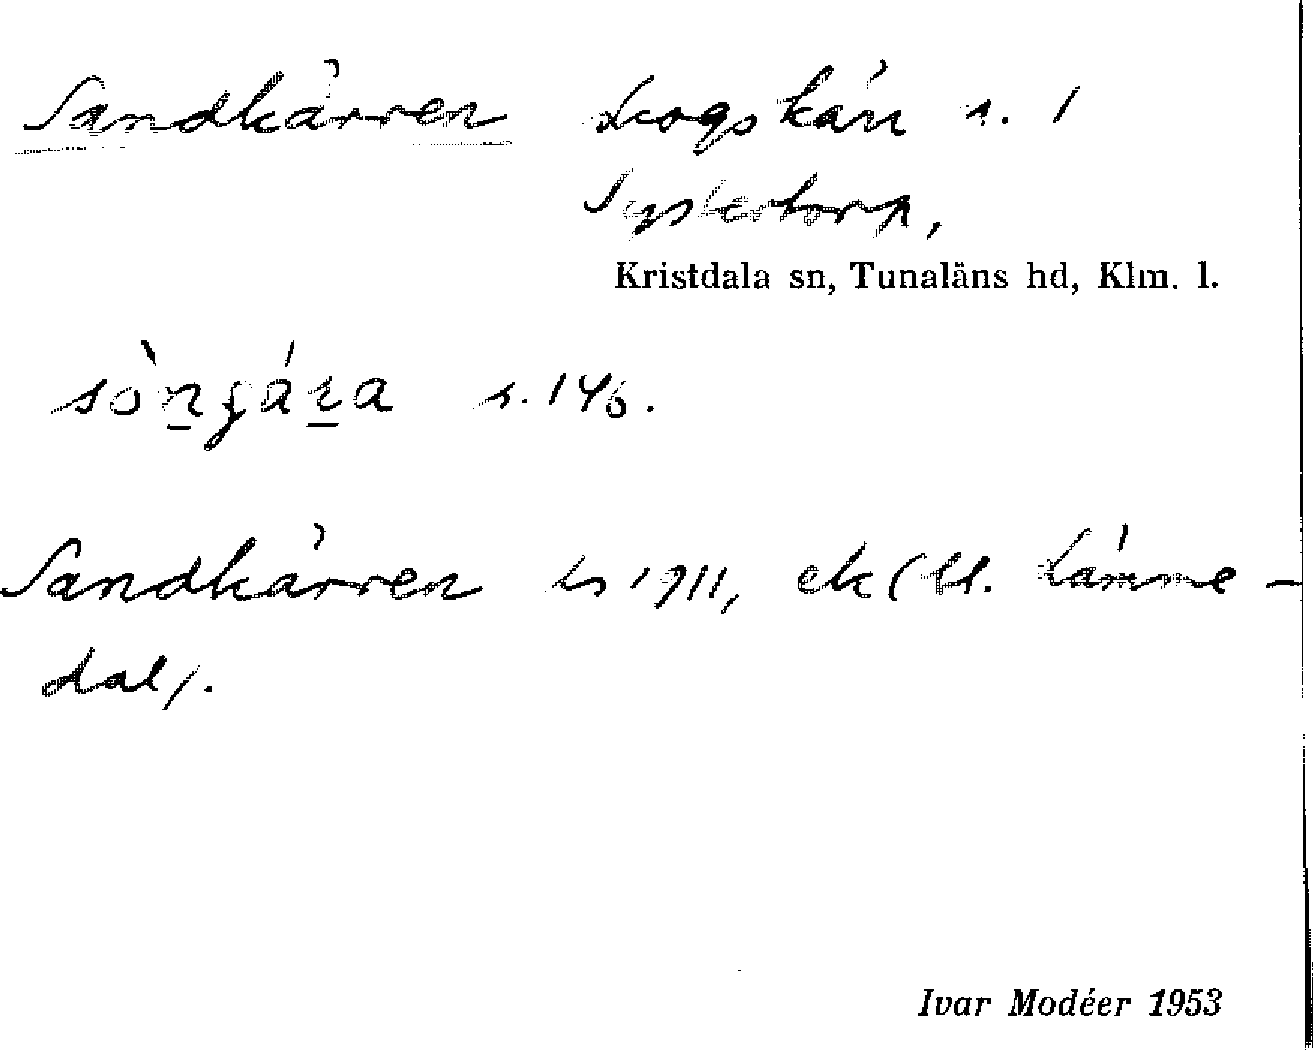 Sandkärren Skogskärr s. 1
Systertorp,
Kristdala sn, Tunaläns hd, Klm. l.
sòngára s. 146.
Sandkärren ls 1911, ek (bl. Lämme-
dal).
Ivar Modéer 1953